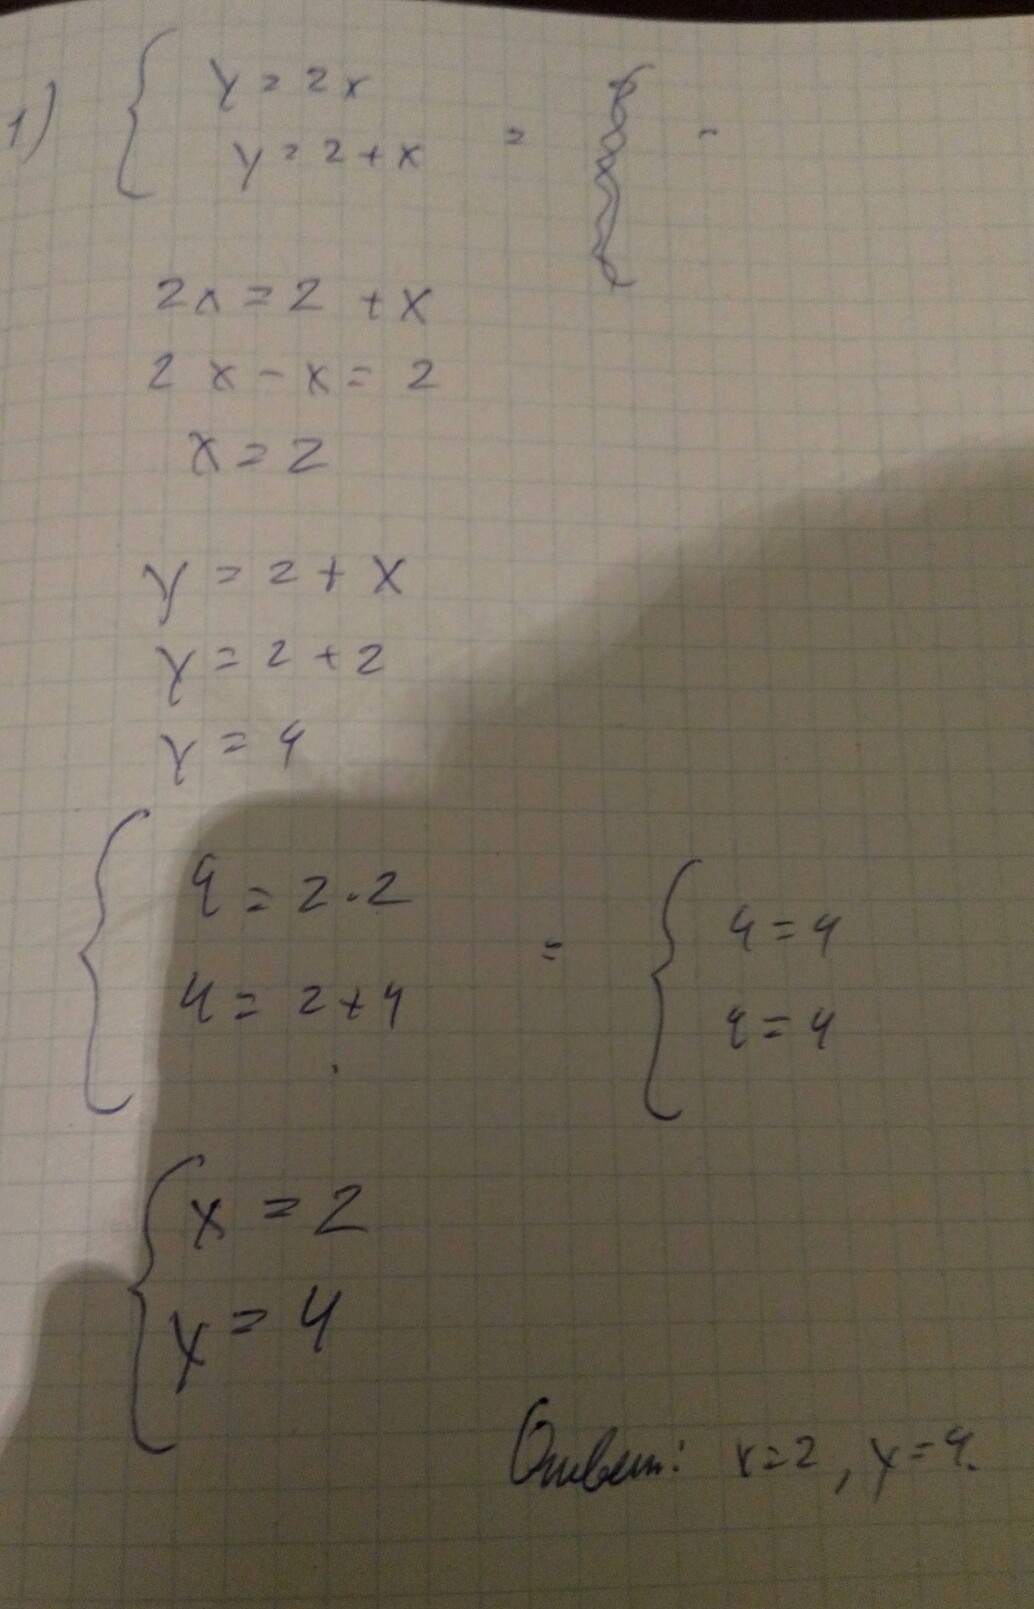 1) { y = 2x
y = 2 + x =
-
2x = 2 + x
2x - x = 2
x = 2
y = 2 + x
y = 2 + 2
y = 4
{ 4 = 2 · 2
4 = 2 + 4
= { 4 = 4
4 = 4
{ x = 2
y = 4
Ответ: x = 2, y = 4.